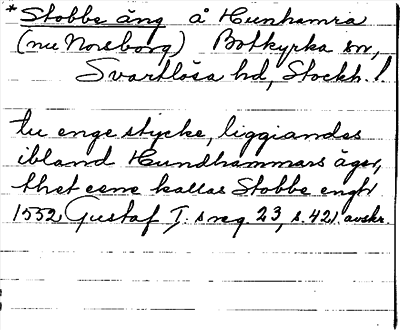 *Stobbe äng å Hunhamra
(nu Norsborg) Botkyrka sn,
Svartlösa hd, Stockh. l
tu enge stycke, liggiandes
ibland Hundhammars äger,
thet eene kallas Stobbe engh
1552 Gustaf I:s reg. 23, s. 421. avskr.